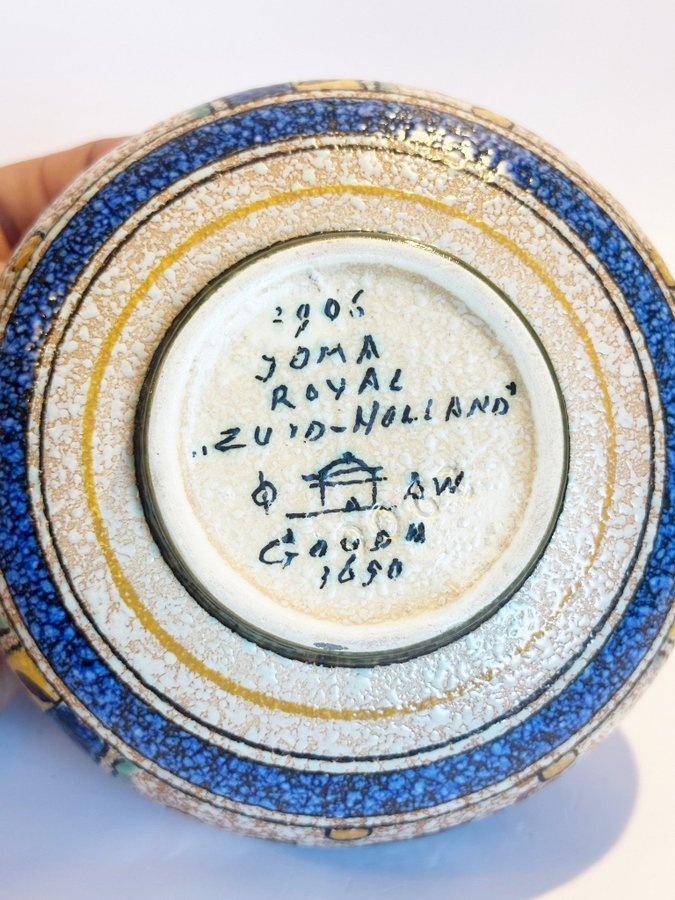 2906
JOMA
ROYAL
„ZUID-HOLLAND"
AW
GOUDA
1650